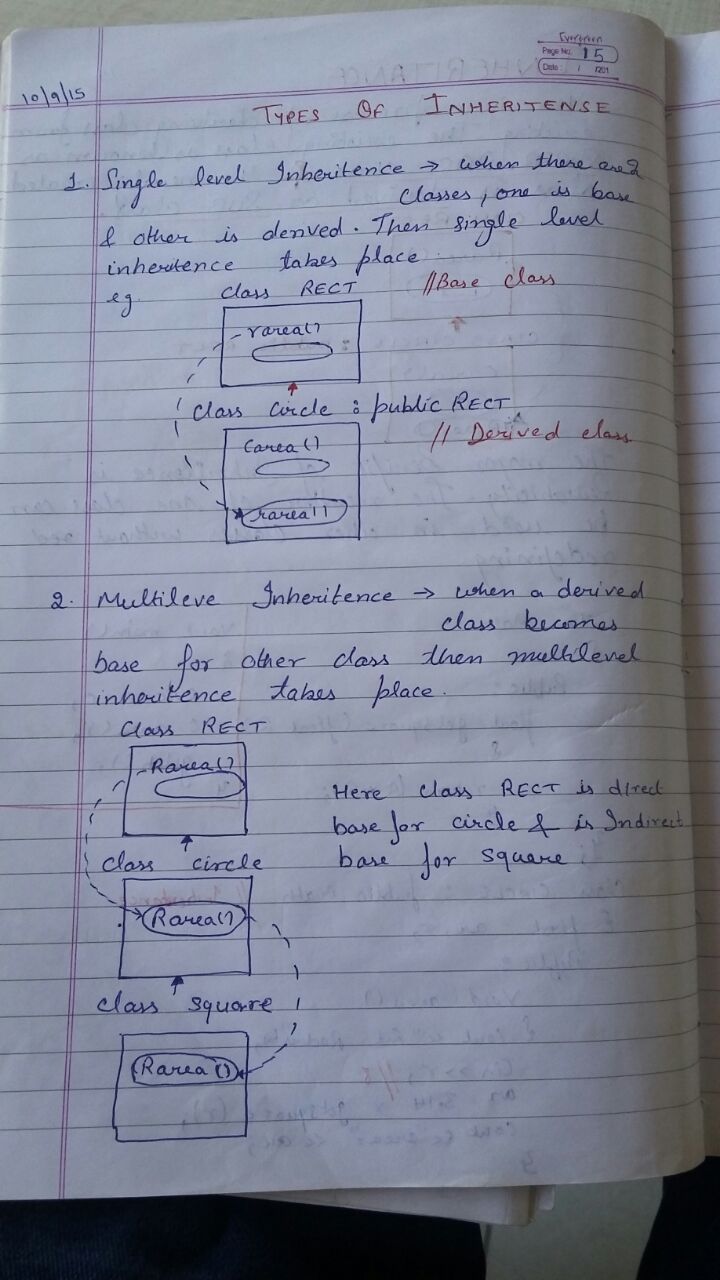 Evergreen
Page No. 15
Date: / /201
10/9/15
TYPES OF INHERITENSE
1. Single level Inheritence → when there are 2
classes, one is base
& other is derived. Then single level
inheritence takes place.
eg. class RECT //Base class
rarea()
class circle : public RECT
// Derived class
Carea()
rarea()
2. Multileve Inheritence → when a derived
class becomes
base for other class then multilevel
inheritence takes place.
Class RECT
Rarea()
Here class RECT is direct
base for circle & is Indirect
class circle base for square.
Rarea()
class square
Rarea()